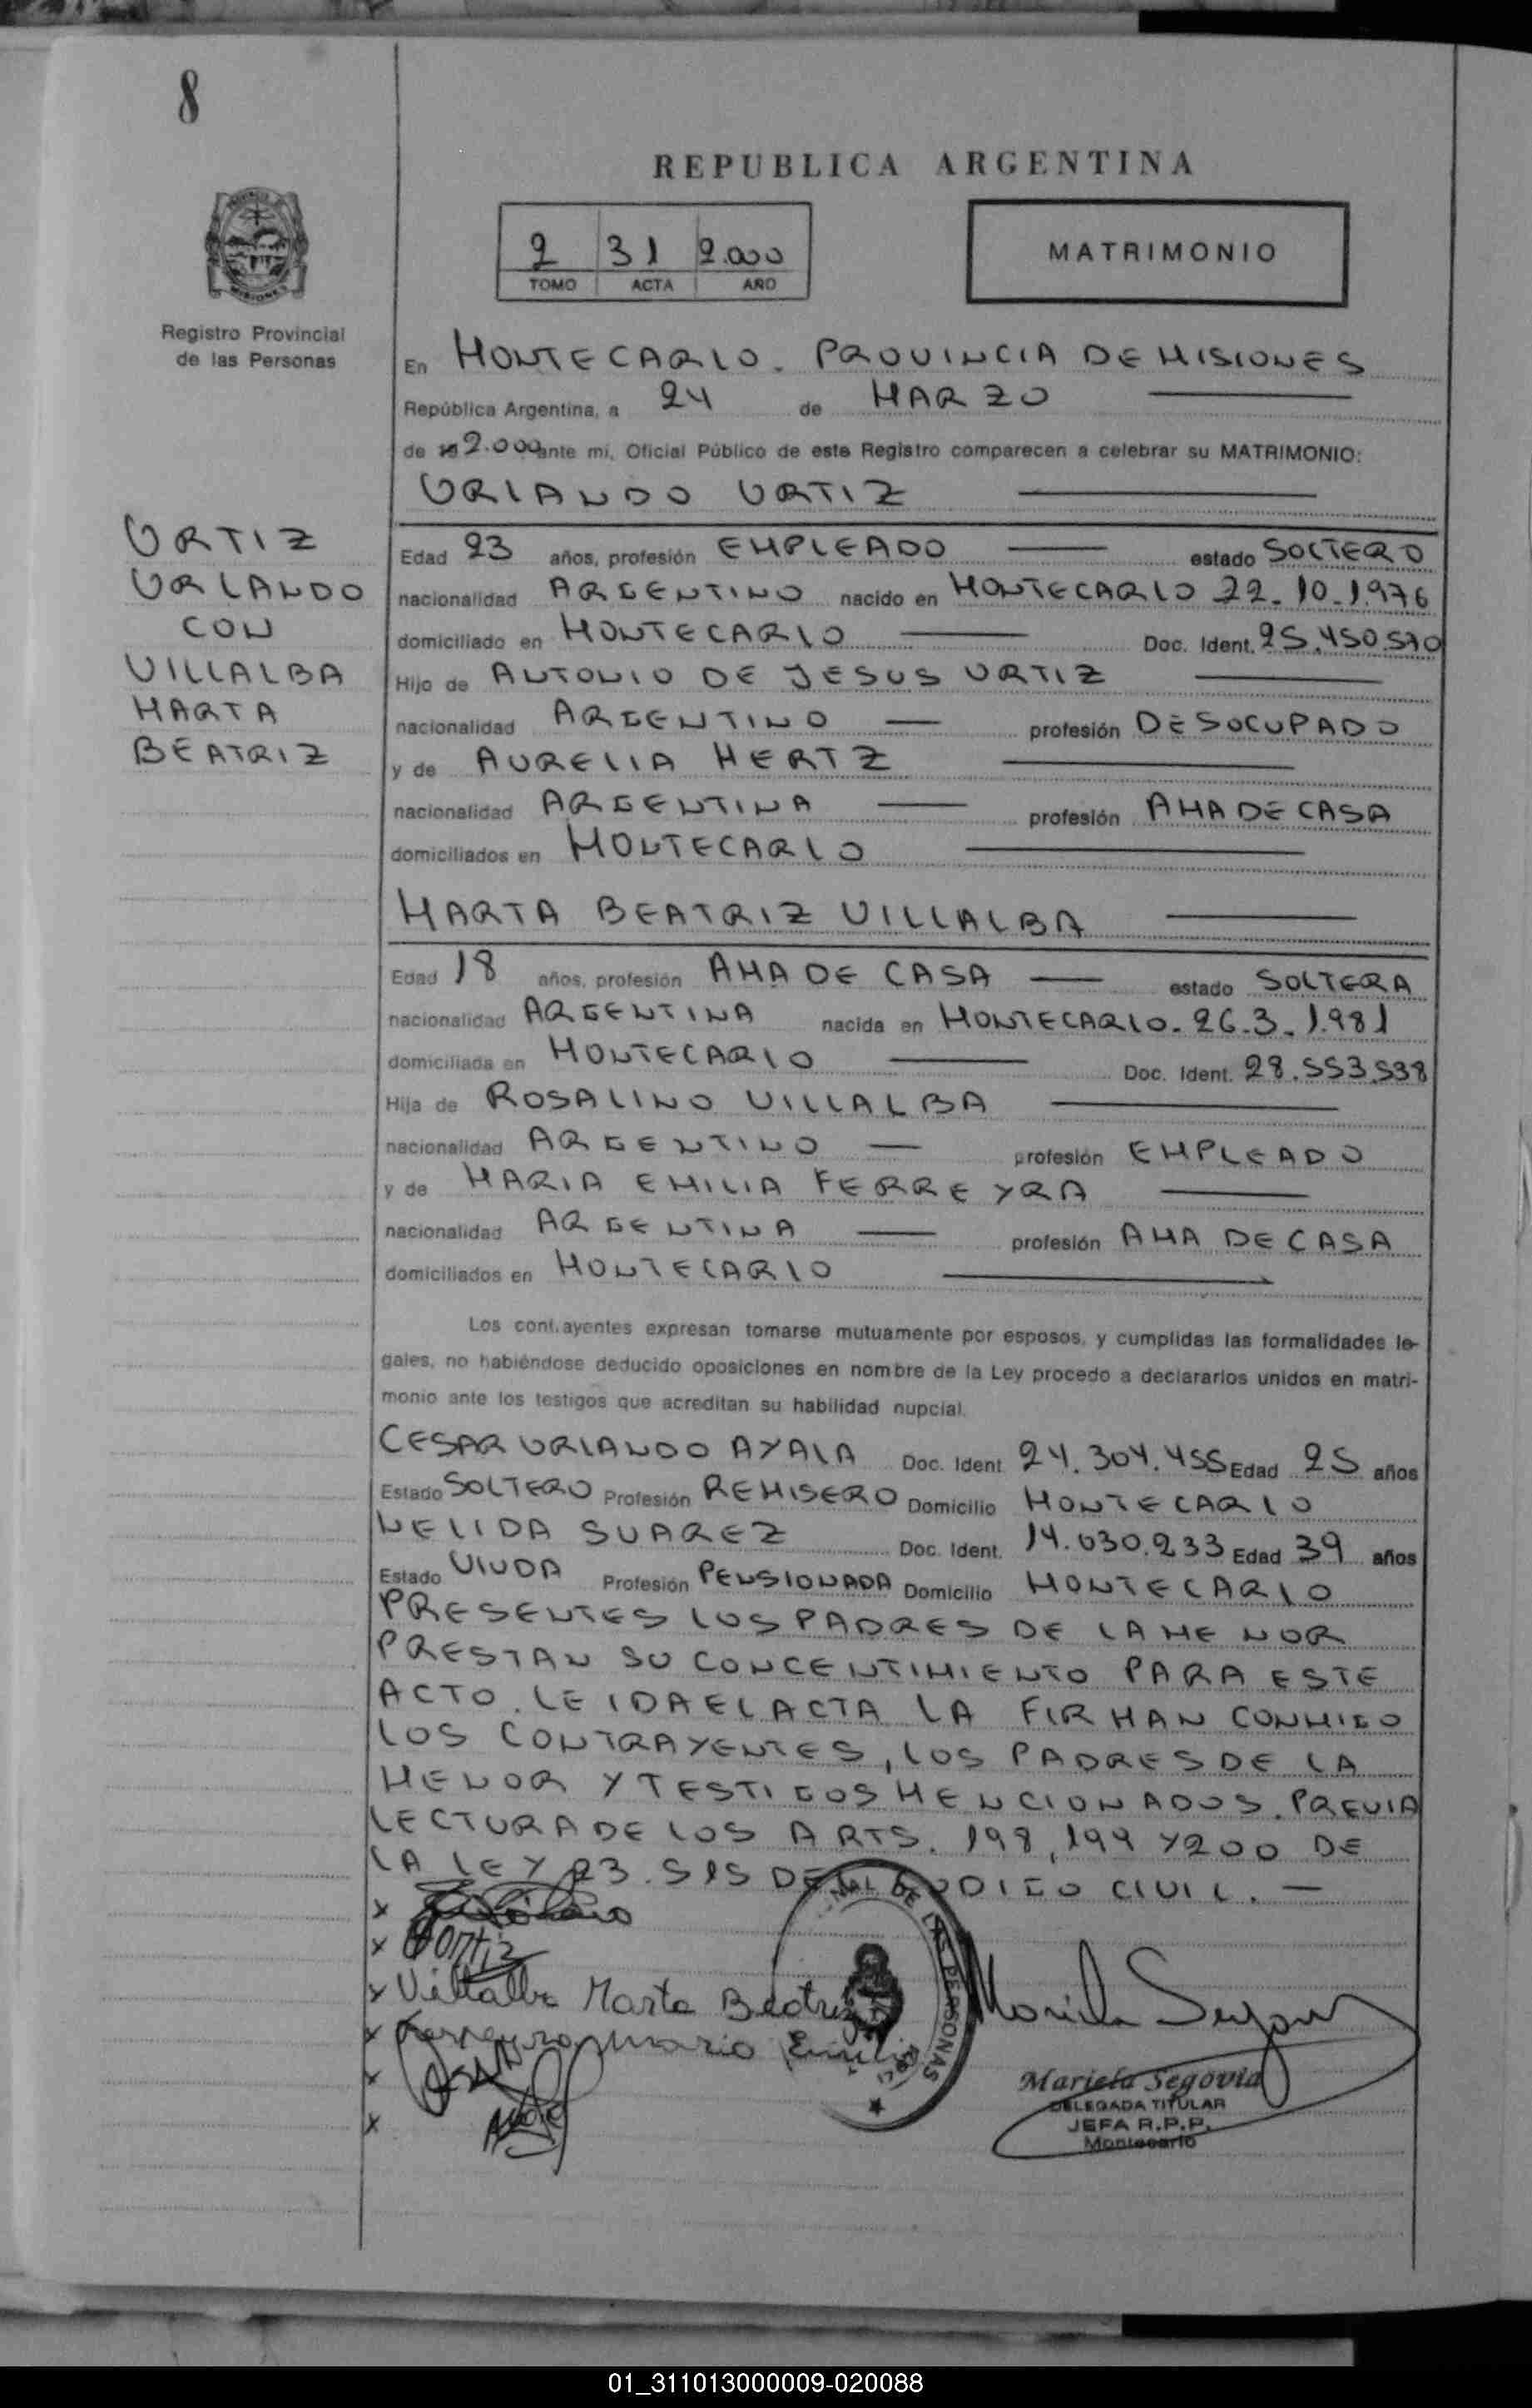 8
REPUBLICA ARGENTINA
2 31 2.000
TOMO ACTA AÑO
MATRIMONIO
Registro Provincial
de las Personas
En MONTECARLO. PROVINCIA DE MISIONES
República Argentina, a 24 de MARZO
de 19 2.000 ante mí, Oficial Público de este Registro comparecen a celebrar su MATRIMONIO:
ORLANDO ORTIZ
ORTIZ
ORLANDO
CON
VILLALBA
MARTA
BEATRIZ
Edad 23 años, profesión EMPLEADO estado SOLTERO
nacionalidad ARGENTINO nacido en MONTECARLO 22-10-1.976
domiciliado en MONTECARLO Doc. Ident. 25.450.570
Hijo de ANTONIO DE JESUS ORTIZ
nacionalidad ARGENTINO profesión DESOCUPADO
y de AURELIA HERTZ
nacionalidad ARGENTINA profesión AMA DE CASA
domiciliados en MONTECARLO
MARTA BEATRIZ VILLALBA
Edad 18 años, profesión AMA DE CASA estado SOLTERA
nacionalidad ARGENTINA nacida en MONTECARLO-26-3-1.981
domiciliada en MONTECARLO Doc. Ident. 28.553.538
Hija de ROSALINO VILLALBA
nacionalidad ARGENTINO profesión EMPLEADO
y de MARIA EMILIA FERREYRA
nacionalidad ARGENTINA profesión AMA DE CASA
domiciliados en MONTECARLO
Los contrayentes expresan tomarse mutuamente por esposos, y cumplidas las formalidades le-
gales, no habiéndose deducido oposiciones en nombre de la Ley procedo a declararlos unidos en matri-
monio ante los testigos que acreditan su habilidad nupcial.
CESAR ORLANDO AYALA Doc. Ident 24.304.455 Edad 25 años
Estado SOLTERO Profesión REMISERO Domicilio MONTECARLO
NELIDA SUAREZ Doc. Ident. 14.030.233 Edad 39 años
Estado VIUDA Profesión PENSIONADA Domicilio MONTECARLO
PRESENTES LOS PADRES DE LA MENOR
PRESTAN SU CONCENTIMIENTO PARA ESTE
ACTO. LEIDA EL ACTA LA FIRMAN CONMIGO
LOS CONTRAYENTES, LOS PADRES DE LA
MENOR Y TESTIGOS MENCIONADOS. PREVIA
LECTURA DE LOS ARTS. 198, 199 Y 200 DE
LA LEY 23.515 DEL CODIGO CIVIL.—
x
x Ortiz
x Villalba Marta Beatriz
x Ferreyra Maria Emilia
x
x
Mariela Segovia
DELEGADA TITULAR
JEFA R.P.P.
Montecarlo
01_311013000009-020088